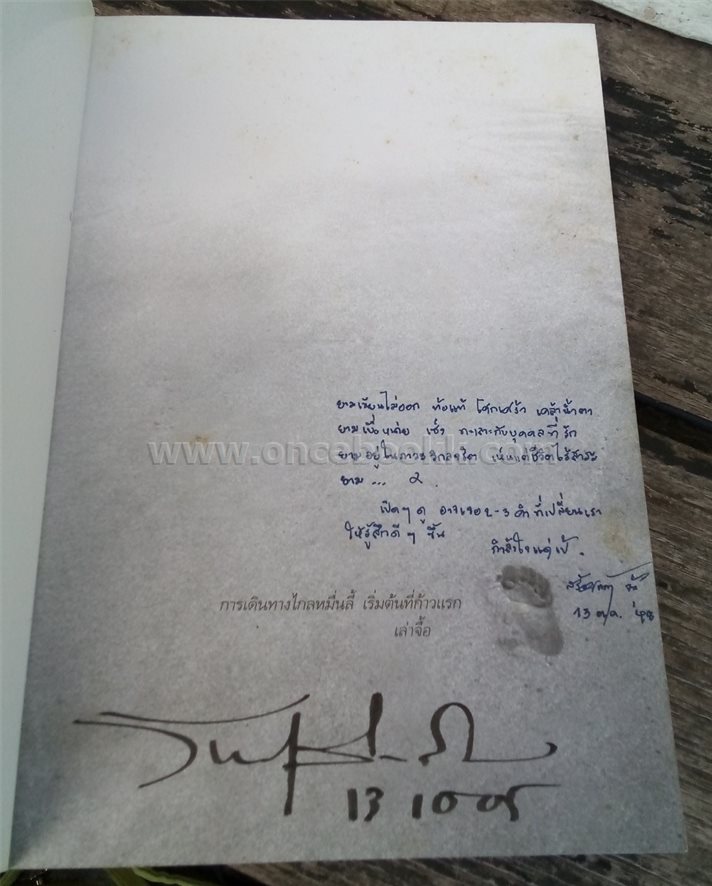 ยามเขียนไม่ออก ท้อแท้ โศกเศร้า เคล้าน้ำตา
ยามเบื่อหน่าย เซ็ง ทะเลาะกับบุคคลที่รัก
www.oncebookk.com
ยามอยู่ในภาวะ เห็นแต่ชีวิตไร้สาระ
ยาม ...
เปิดๆ ดู อาจเจอ 2-3 คำ ที่เปลี่ยนเรา
ให้รู้สึกดีๆ ขึ้น
กำลังใจ
13 ต.ค.
การเดินทางไกลหมื่นลี้ เริ่มต้นที่ก้าวแรก
เล่าจื้อ
13 10